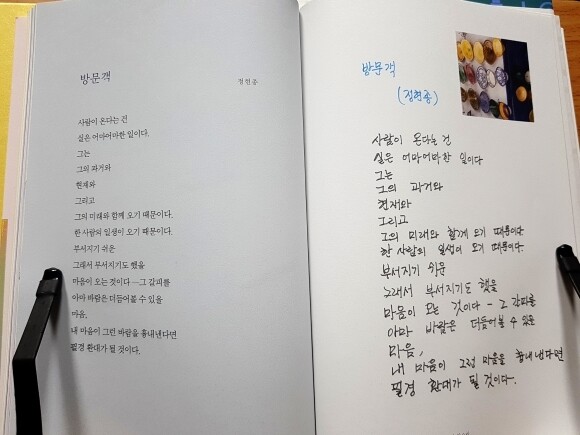 방문객
정현종
사람이 온다는 건
실은 어마어마한 일이다.
그는
그의 과거와
현재와
그리고
그의 미래와 함께 오기 때문이다.
한 사람의 일생이 오기 때문이다.
부서지기 쉬운
그래서 부서지기도 했을
마음이 오는 것이다―그 갈피를
아마 바람은 더듬어볼 수 있을
마음,
내 마음이 그런 바람을 흉내낸다면
필경 환대가 될 것이다.
방문객
(정현종)
사람이 온다는 건
실은 어마어마한 일이다
그는
그의 과거와
현재와
그리고
그의 미래와 함께 오기 때문이다
한 사람의 일생이 오기 때문이다.
부서지기 쉬운
그래서 부서지기도 했을
마음이 오는 것이다 - 그 갈피를
아마 바람은 더듬어볼 수 있을
마음,
내 마음이 그런 마음을 흉내낸다면
필경 환대가 될 것이다.